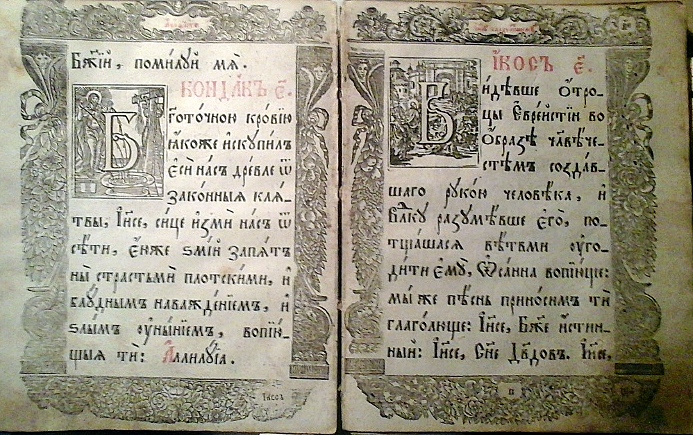 Бж҃їй, помилуй мѧ̀.
КОНДАКЪ є҃.
Б
готочною кровїю
ꙗкоже искупилъ
єсѝ насъ древле ѿ
законныѧ клѧ-
твы, І҆и҃се, сице изми насъ ѿ
сѣти, єюже ѕмїй запѧтъ
ны страстьмѝ плотскими, и҆
блуднымъ наважденїемъ, и҆
ѕлымъ ᲂу҆нынїемъ, вопїю-
щыѧ тѝ: А҆ллилꙋїа.
Іисꙋсъ
І҆КОСЪ є҃.
В
идѣвше ѻтро-
цы Єврейстїи во
ѻбразѣ чл҃вѣче-
стѣмъ создав-
шаго рукою человѣка, и҆
вл҃ку разумѣвше є҆го̀, по-
тщашасѧ вѣтвми ᲂуго-
дити є҆му̀, ѡ҆санна вопїюще:
мы же пѣснь приносимъ тѝ
глаголюще: І҆и҃се, бж҃е истин-
ный: І҆и҃се, сн҃е дв҃довъ. І҆и҃се,